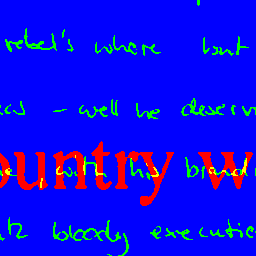 rebel's where but
- well he deserv
ountry w
, with his brand
bloody execution